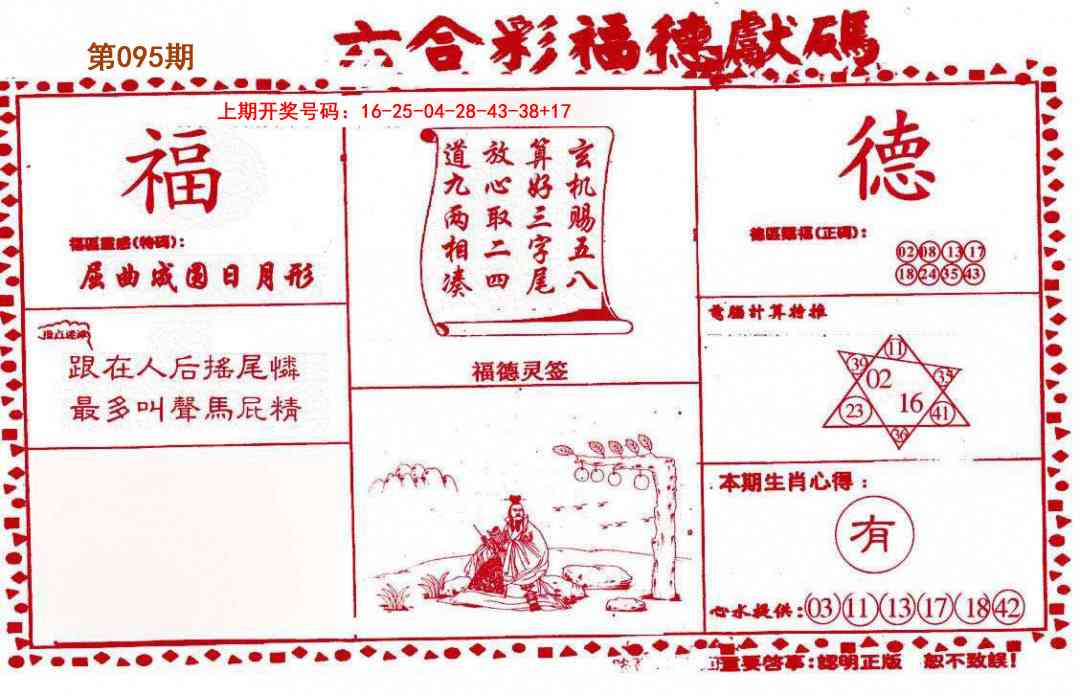 第095期
六合彩福德獻碼
上期开奖号码：16-25-04-28-43-38+17
福
福區靈感(特碼)：
屈曲成圆日月形
跟在人后搖尾憐
最多叫聲馬屁精
玄机赐五八
算好三字尾
放心取二四
道九两相凑
福德灵签
德
德區賜福(正碼)：
02 08 13 17
18 24 35 43
電腦計算特推
11
39 02 35
23 16 41
36
本期生肖心得：
有
心水提供：03 11 13 17 18 42
重要啓事：認明正版 恕不致誤！